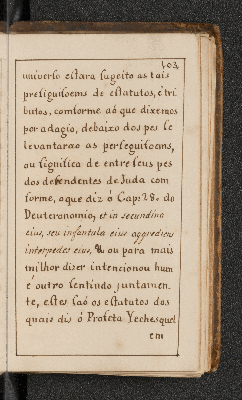 103
universo estara sugeito as tais
presiguisoems de estatutos, è tri
butos, comforme aó que dixemos
por adagio, debaixo dos pes se
levantaraõ as perseguisoins,
ou significa de entre seus pes
dos defendentes de Juda com
forme, aque diz ó Cap: 28. do
Deuteronomio, et in secundina
eius, seu infantula eius aggrediens
interpedes eius, & ou para mais
milhor dizer intencionou hum
è outro sentindo juntamen
te, estes saó os estatutos dos
quais dis ó Profeta Yechesquel
em